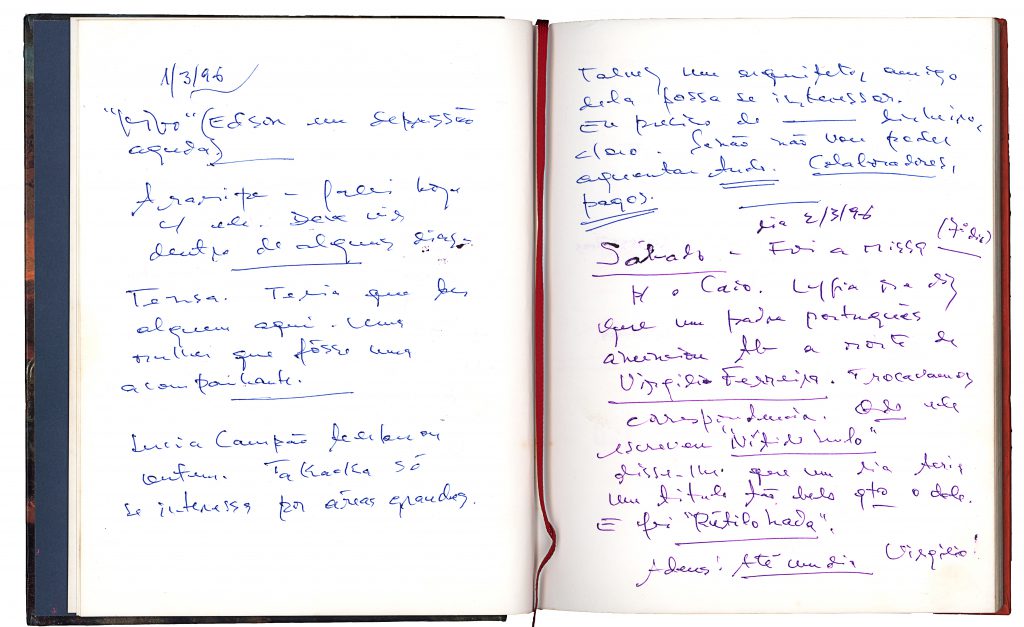 1/3/96
"Vivo" (Edson em depressão
aguda)
Araripe – falei hoje
c/ ele. Deve vir
dentro de alguns dias.
Tensa. Teria que ter
alguem aqui. Uma
mulher que fôsse uma
acompanhante.
Lucia Campão telefonou
ontem. Takaoka só
se interessa por áreas grandes.
Talvez um arquiteto, amigo
dela possa se interessar.
Eu preciso de dinheiro,
claro. Senão não vou poder
aguentar tudo. Colaboradores,
pagos.
dia 2/3/96
Sábado – Foi a missa (7º dia)
p/ o Caio. Lygia me diz
que um padre português
anunciou a morte de
Virgilio Ferreira. Trocavamos
correspondencia. Qdo ele
escreveu "Nítido Nulo"
disse-lhe que um dia teria
um titulo tão belo qto o dele.
E foi "Rútilo Nada".
Adeus! Até um dia Virgilio!